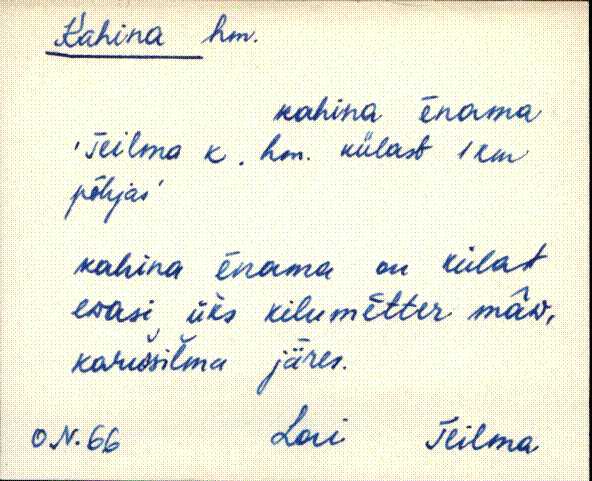 Kahina hm.
kahina ēnama
'Teilma k. hm. külast 1 km
põhjas'
kahina ēnama on külast
erasi, üks kilumētter mâw,
karu͔šil̆ma järes.
O.N. 66 Lori Teilma